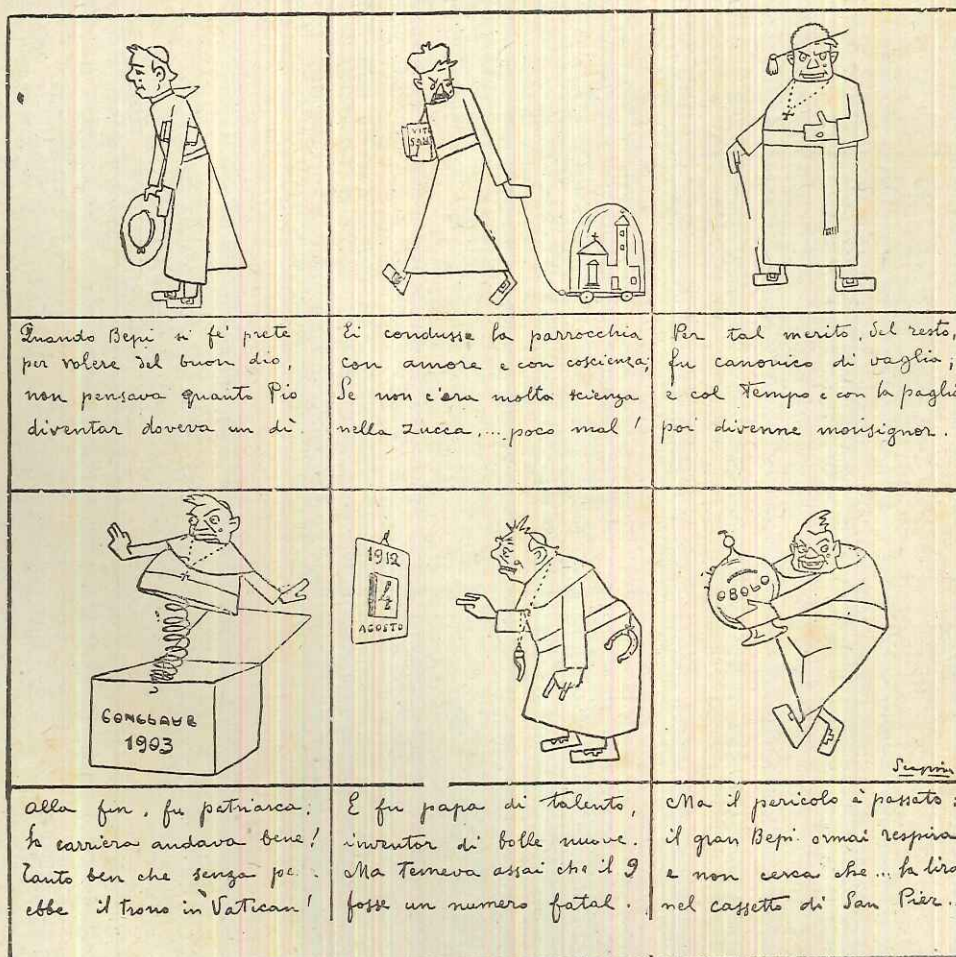 VITE
SANTI
Quando Bepi si fe' prete
per volere del buon dio,
non pensava quanto Pio
diventar doveva un dì.
Ei condusse la parrocchia
con amore e con coscienza;
Se non c'era molta scienza
nella zucca,... poco mal!
Per tal merito, del resto,
fu canonico di vaglia;
e col tempo e con la paglia
poi divenne monsignor.
CONCLAVE
1903
1912
4
AGOSTO
OBOLO
Alla fin, fu patriarca;
la carriera andava bene!
Tanto ben che senza
ebbe il trono in Vatican!
E fu papa di talento,
inventor di bolle nuove.
Ma temeva assai che il 9
fosse un numero fatal.
Ma il pericolo è passato:
il gran Bepi ormai respira
e non cerca che... la lira
nel cassetto di San Pier.